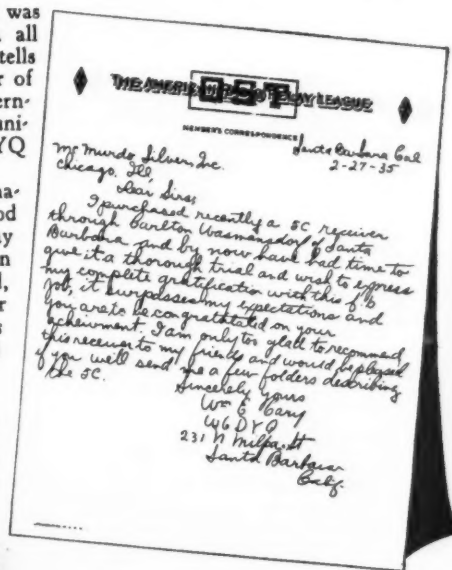 was
all
tells
r of
ern-
ani-
YQ
na-
od
ay
n
l,
r
s
THE AMERICAN RADIO RELAY LEAGUE
QST
MEMBER'S CORRESPONDENCE
Santa Barbara Cal
2-27-35
McMurdo Silver, Inc.
Chicago, Ill.
Dear Sirs;
I purchased recently a 5C receiver
through Carlton Wasmansdorf of Santa
Barbara and by now have had time to
give it a thorough trial and wish to express
my complete gratification with this f b
job, it surpasses my expectations and
you are to be congratulated on your
acheivment. I am only too glad to recommend
this receiver to my friends and would be pleased
if you will send me a few folders describing
the 5C.
Sincerely yours
Wm E Cary
W6DYQ
231 N Milpas St
Santa Barbara
Calif.